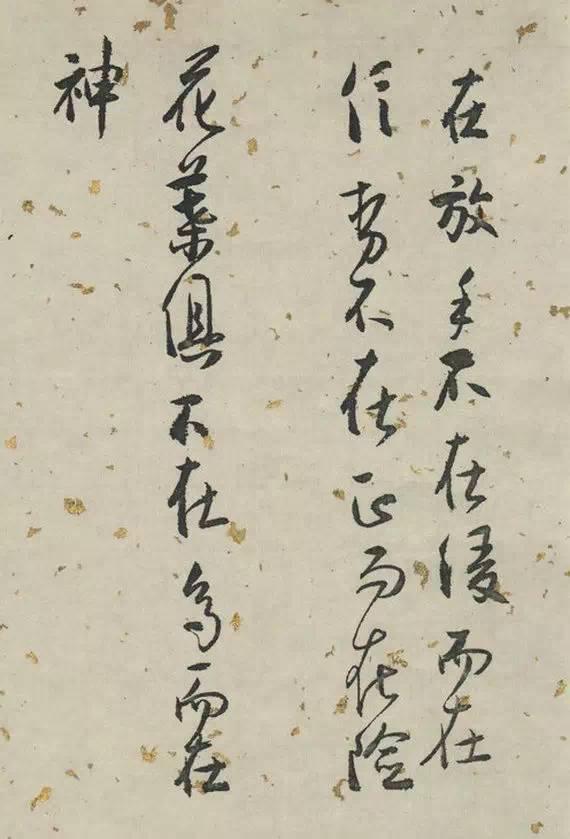 在放手不在而在
信勢不在正而在險
花葉俱不在多而在
神